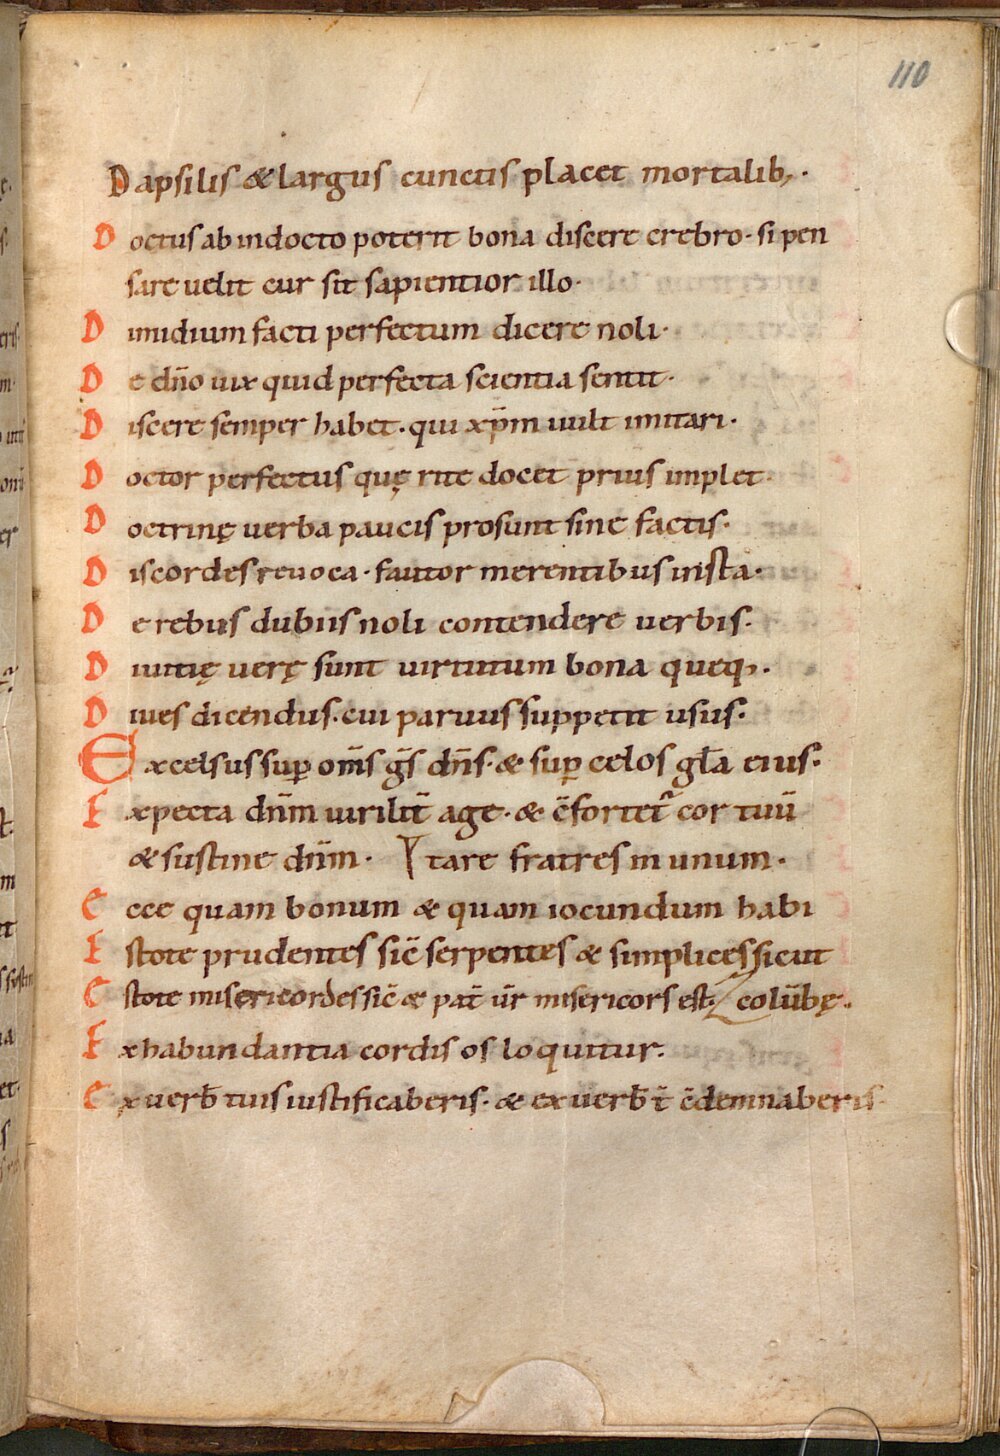 110
Dapsilis & largus cunctis placet mortalib;·
Doctus ab indocto poterit bona discere crebro· si pen
sare uelit cur sit sapientior illo·
Dimidium facti perfectum dicere noli·
De dn̄o uix quid perfecta scientia sentit·
Discere semper habet· qui xp̄m uult imitari·
Doctor perfectus quę rite docet prius implet·
Doctrinę uerba paucis prosunt sine factis·
Discordes reuoca· fautor merentibus insta·
De rebus dubiis noli contendere uerbis·
Diuitię uerę sunt uirtutum bona queq;·
Diues dicendus· cui paruus suppetit usus·
Excelsus sup̱ om̄s gs̄ dn̄s· & sup̱ celos gl̄a eius·
Expecta dn̄m uirilit̄ age· & c̄fortet̄ cor tuū
& sustine dn̄m· tare fratres in unum·
Ecce quam bonum & quam iocundum habi
Estote prudentes sic̄ serpentes & simplices sicut
Estote misericordes sic̄ & pat̄ ur̄ misericors est· colūbę·
Ex habundantia cordis os loquitur·
Ex uerb̄ tuis iustificaberis· & ex uerb̄ t̄ c̄demnaberis·